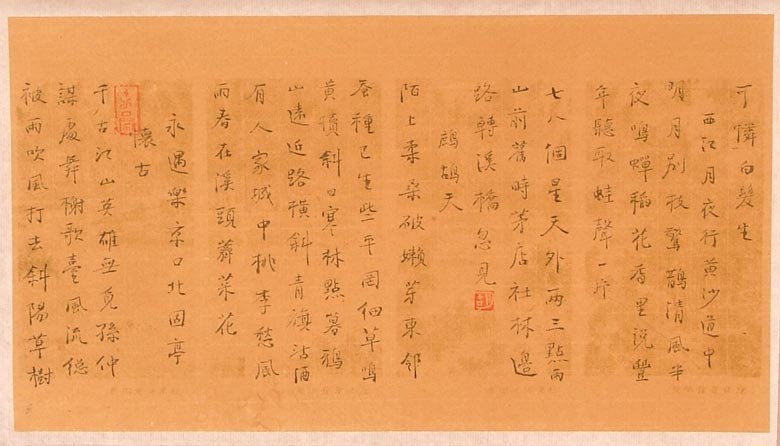 可憐白髮生
西江月夜行黄沙道中
明月别枝驚鵲清風半
夜鳴蟬稻花香里说豐
年聽取蛙聲一片
七八個星天外两三點雨
山前舊時茅店社林邊
路轉溪橋忽見
鷓鴣天
陌上柔桑破嫩芽東鄰
蚕種已生些平岡细草鳴
黄犢斜日寒林點暮鴉
山遠近路横斜青旗沽酒
有人家城中桃李愁風
雨春在溪頭薺菜花
永遇樂京口北固亭
懷古
千古江山英雄无覓孫仲
謀處舞榭歌臺風流總
被雨吹風打去斜陽草樹